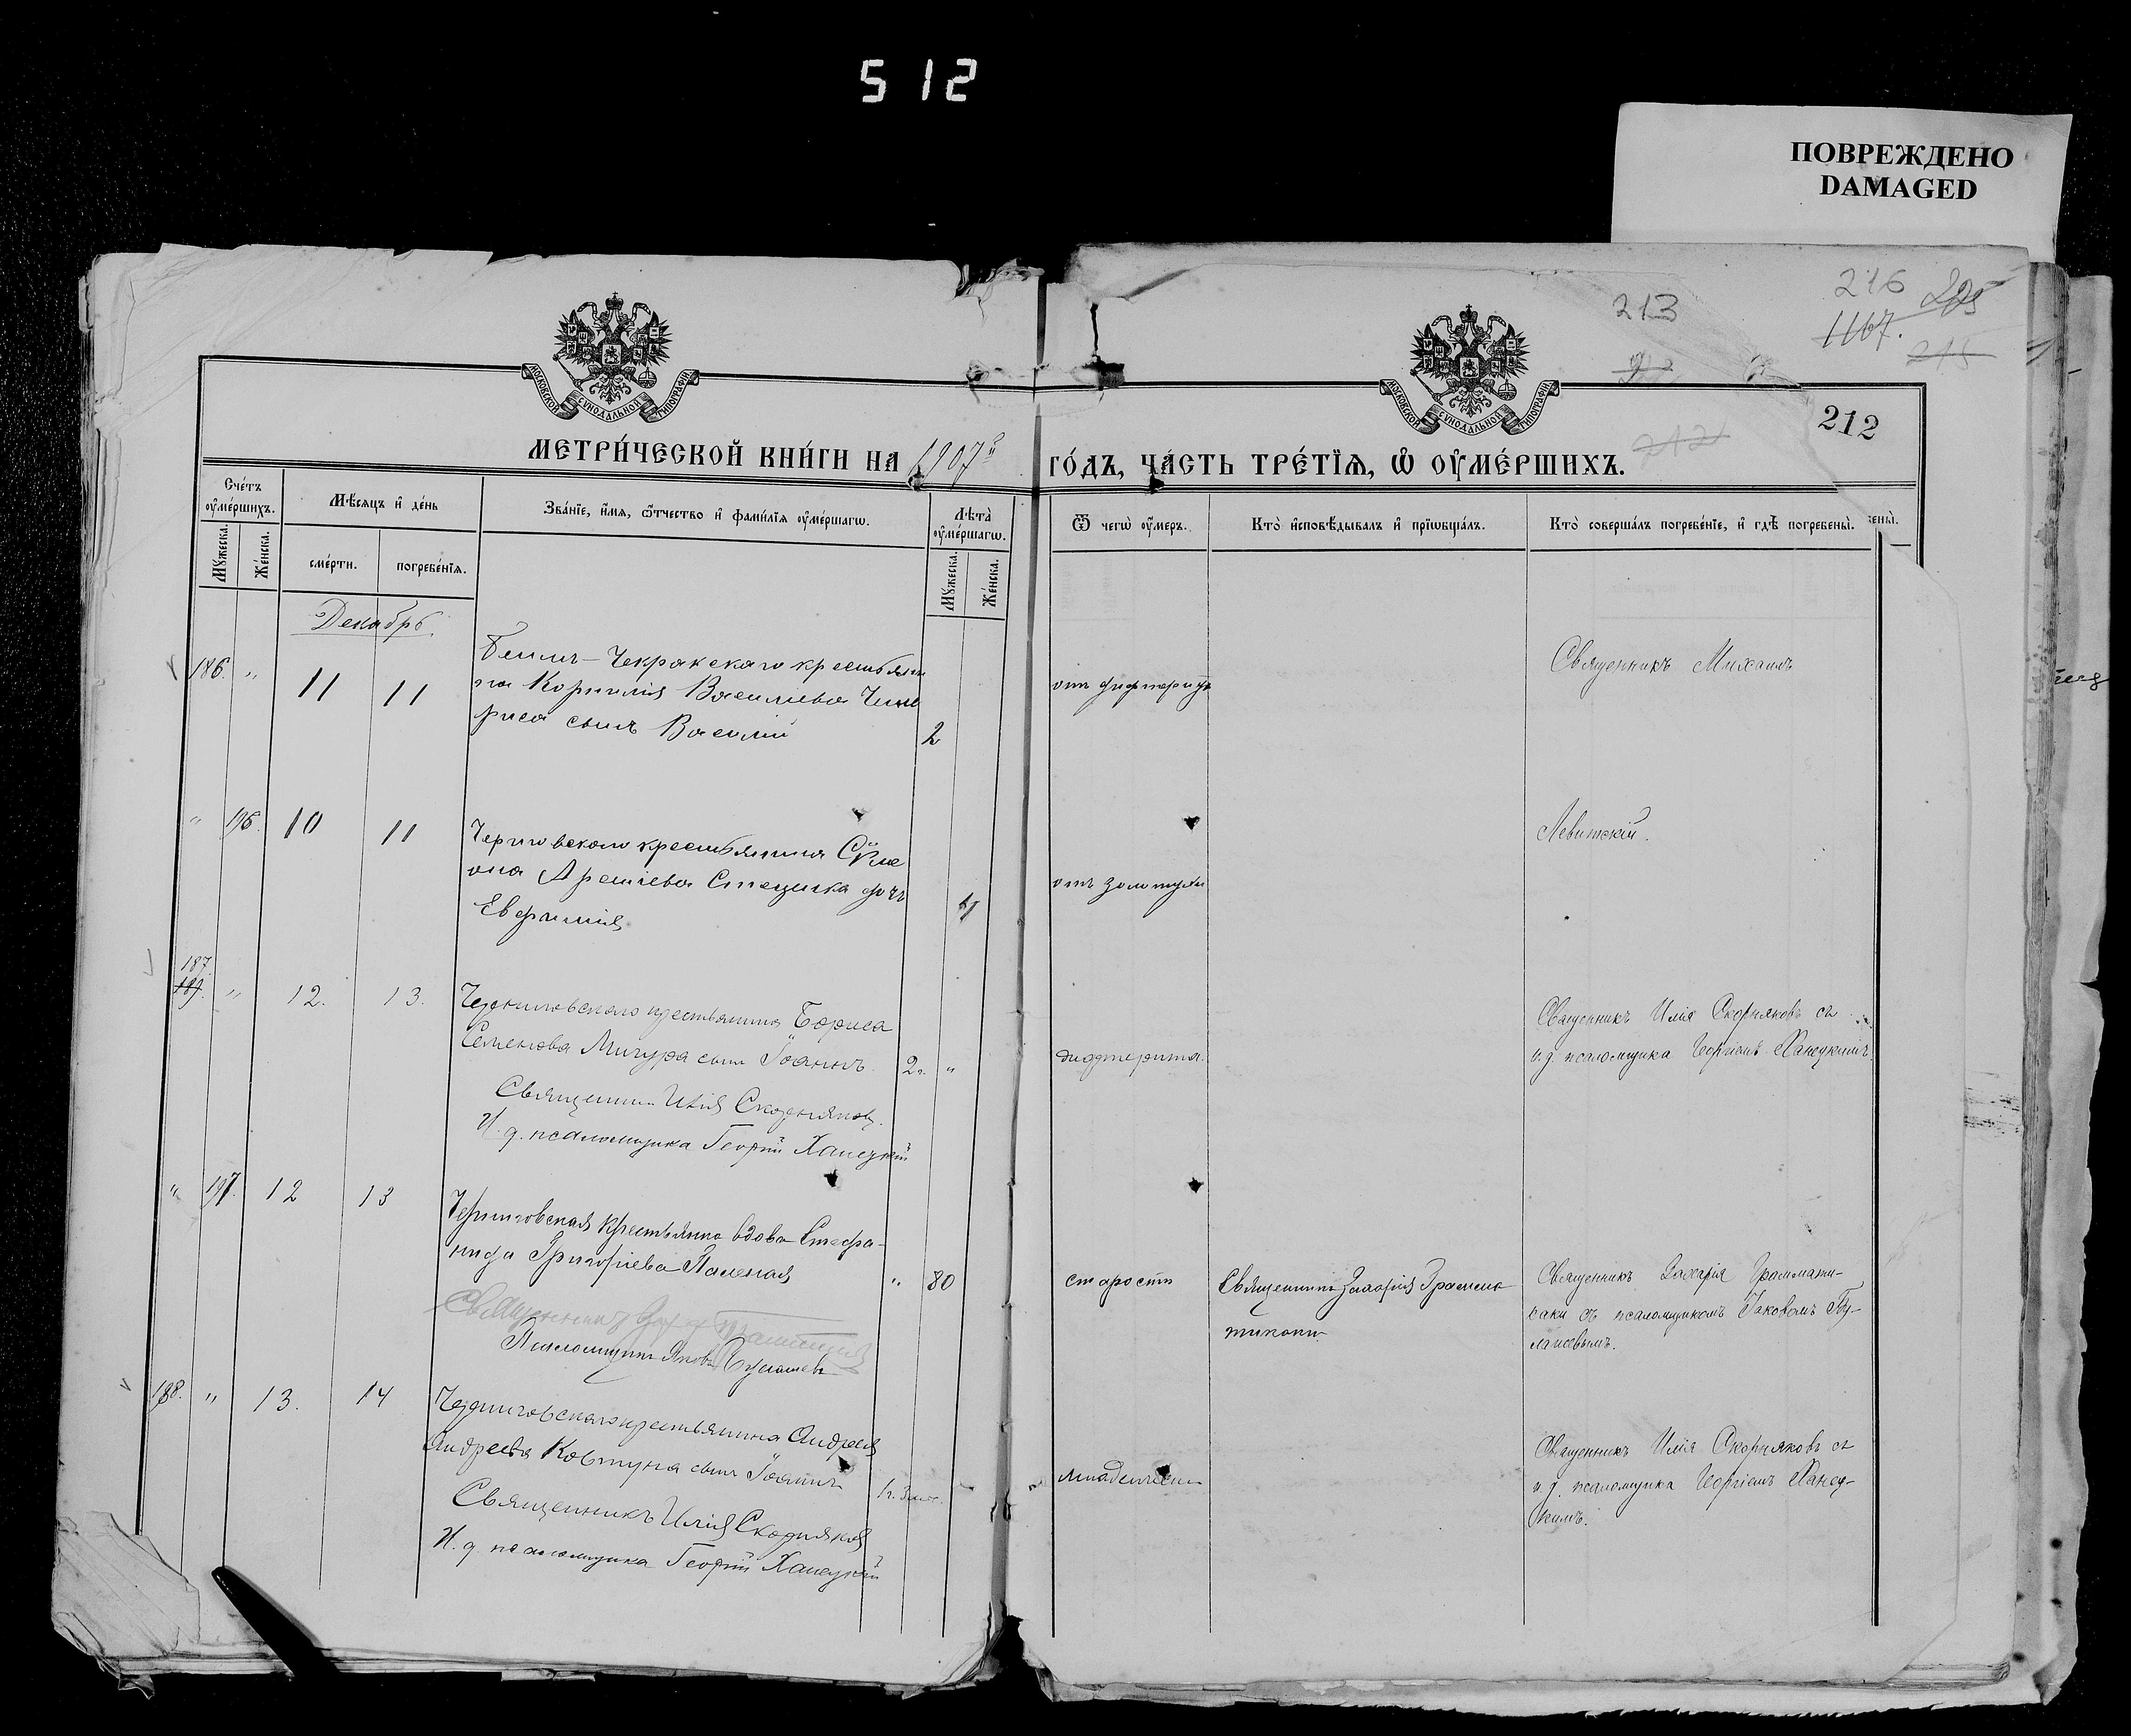 512
ПОВРЕЖДЕНО
DAMAGED
213
216
1167.
212
МОСКОВСКОЙ СУНОДАЛЬНОЙ ТИПОГРАФІИ
МОСКОВСКОЙ СУНОДАЛЬНОЙ ТИПОГРАФІИ
МЕТРИ́ЧЕСКОЙ КНИ́ГИ НА 1907й ГО́ДЪ, ЧА́СТЬ ТРЕ́ТІѦ, Ѡ҆ ОУ҆МЕ́РШИХЪ.
Сче́тъ оу҆ме́ршихъ.
Мꙋ́жеска.
Же́нска.
Мѣ́сяцъ и҆ де́нь
сме́рти.
погребе́нїѧ.
Зва́нїе, и҆́мѧ, ѻ҆́тчество и҆ фами́лїѧ оу҆ме́ршагѡ.
Лѣта̀ оу҆ме́ршагѡ.
Мꙋ́жеска.
Же́нска.
Ѿ чегѡ̀ оу҆́меръ.
Кто̀ и҆сповѣ́дывалъ и҆ прїѡбща́лъ.
Кто̀ соверша́лъ погребе́нїе, и҆ гдѣ̀ погребены̀.
Декабрь.
186. " 11 11
Бешъ-Чекракскаго крестьяни
на Корнилія Васильева
сынъ Василій 2
отъ дифтерита
Священникъ Михаилъ
" 196. 10 11
Черниговского крестьянина Симе
она дочь
Евфимія
отъ золотухи
Левитскій.
187. " 12. 13.
Черниговского крестьянина Бориса
Семенова Мичура сынъ Іоаннъ. 2 г. "
Священникъ Илія Скорняковъ.
И. д. псаломщика Георгій Ханецкій
дифтерита.
Священникъ Илія Скорняковъ съ
и. д. псаломщика Георгіемъ Ханецкимъ
" 197. 12 13
Черниговская крестьянка вдова Стефа-
нида Григоріева " 80
Священникъ
Псаломщикъ Яковъ
старости
Священникъ Захарія Граммати
Священникъ Захарія Граммати-
каки съ псаломщикомъ Іаковомъ
188. " 13. 14
Черниговского крестьянина Андрея
Андреева Ковтуна сынъ Іоаннъ 1 г. 3 мѣс.
Священникъ Илія Скорняковъ
И. д. псаломщика Георгій Ханецкій
Священникъ Илія Скорняковъ съ
и. д. псаломщика Георгіемъ Ханец-
кимъ.